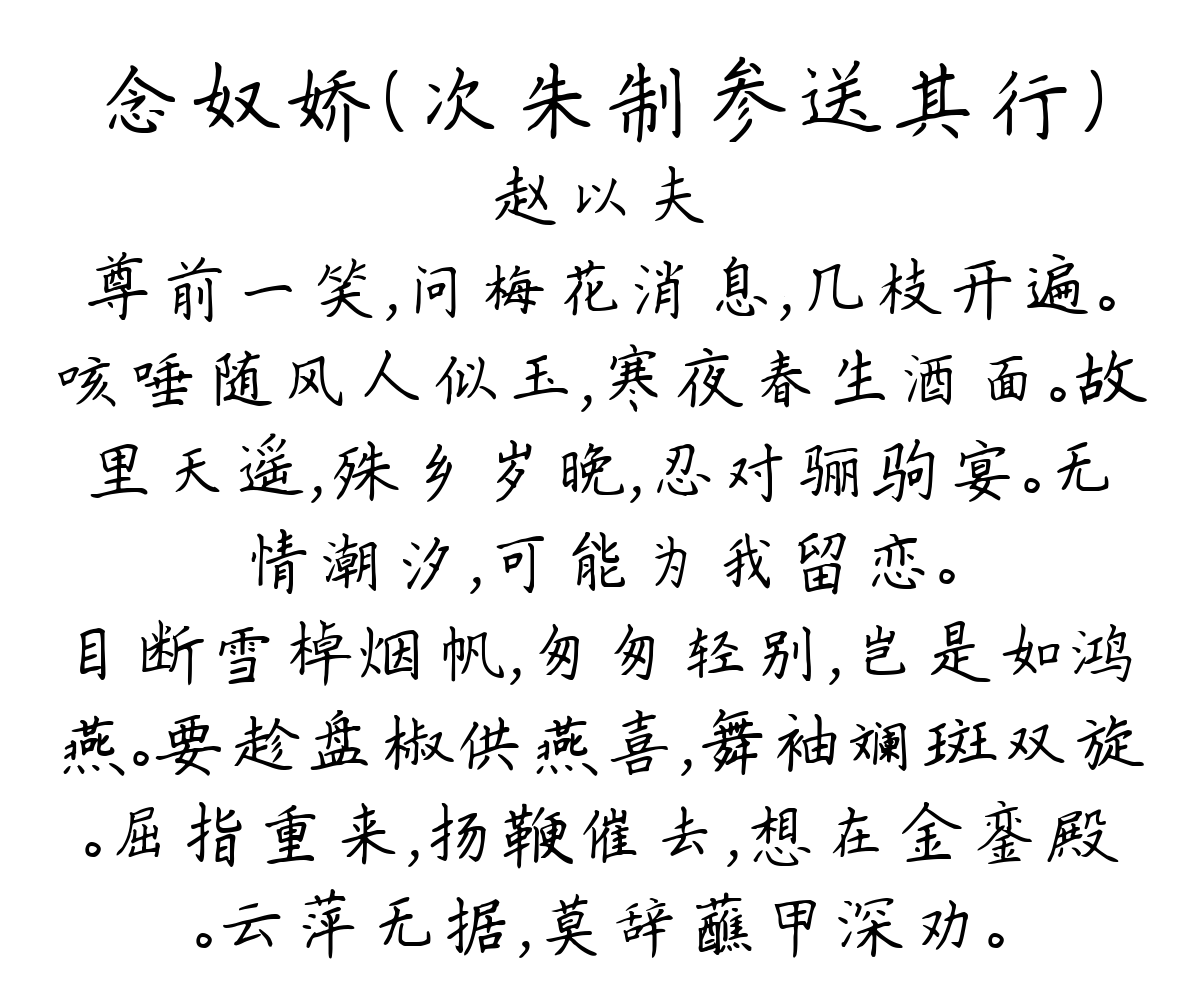 念奴娇(次朱制参送其行)
赵以夫
尊前一笑,问梅花消息,几枝开遍。
咳唾随风人似玉,寒夜春生酒面。故
里天遥,殊乡岁晚,忍对骊驹宴。无
情潮汐,可能为我留恋。
目断雪棹烟帆,匆匆轻别,岂是如鸿
燕。要趁盘椒供燕喜,舞袖斓斑双旋
。屈指重来,扬鞭催去,想在金銮殿
。云萍无据,莫辞蘸甲深劝。